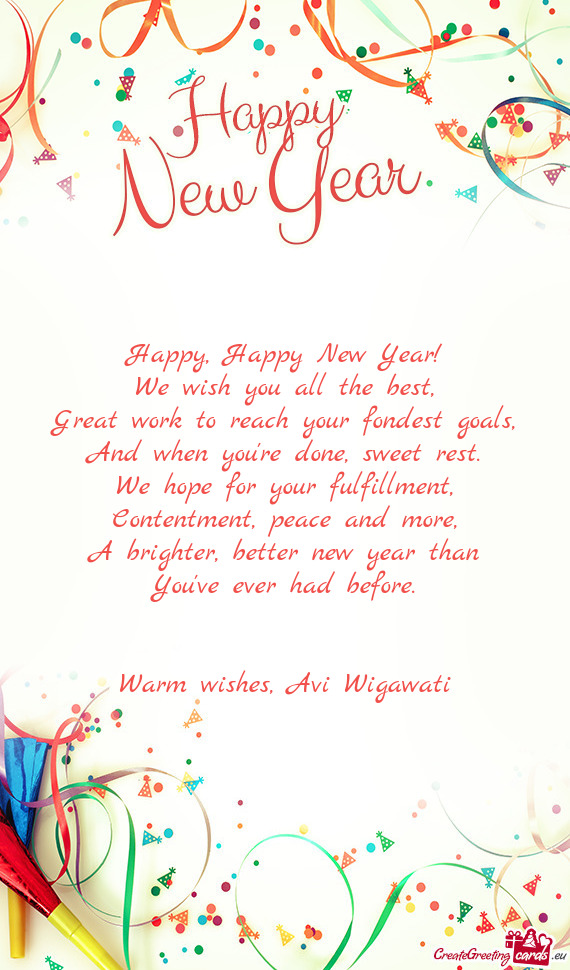 Happy
New Year
Happy, Happy New Year!
We wish you all the best,
Great work to reach your fondest goals,
And when you're done, sweet rest.
We hope for your fulfillment,
Contentment, peace and more,
A brighter, better new year than
You've ever had before.
Warm wishes, Avi Wigawati
CreateGreeting cards .eu